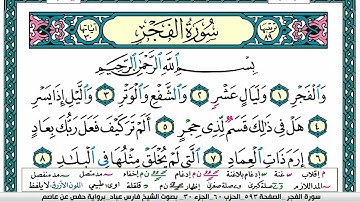 ترتيبها ٨٩ سُورَةُ الْفَجْرِ آياتها ٣٠
بِسْمِ اللَّهِ الرَّحْمَٰنِ الرَّحِيمِ
وَالْفَجْرِ ١ وَلَيَالٍ عَشْرٍ ٢ وَالشَّفْعِ وَالْوَتْرِ ٣ وَاللَّيْلِ إِذَا يَسْرِ
٤ هَلْ فِي ذَٰلِكَ قَسَمٌ لِّذِي حِجْرٍ ٥ أَلَمْ تَرَ كَيْفَ فَعَلَ رَبُّكَ بِعَادٍ
٦ إِرَمَ ذَاتِ الْعِمَادِ ٧ الَّتِي لَمْ يُخْلَقْ مِثْلُهَا فِي الْبِلَادِ ٨
سورة الفجر الصفحة ٥٩٣ الحزب ٦٠ الجزء ٣٠ بصوت الشيخ فارس عباد برواية حفص عن عاصم